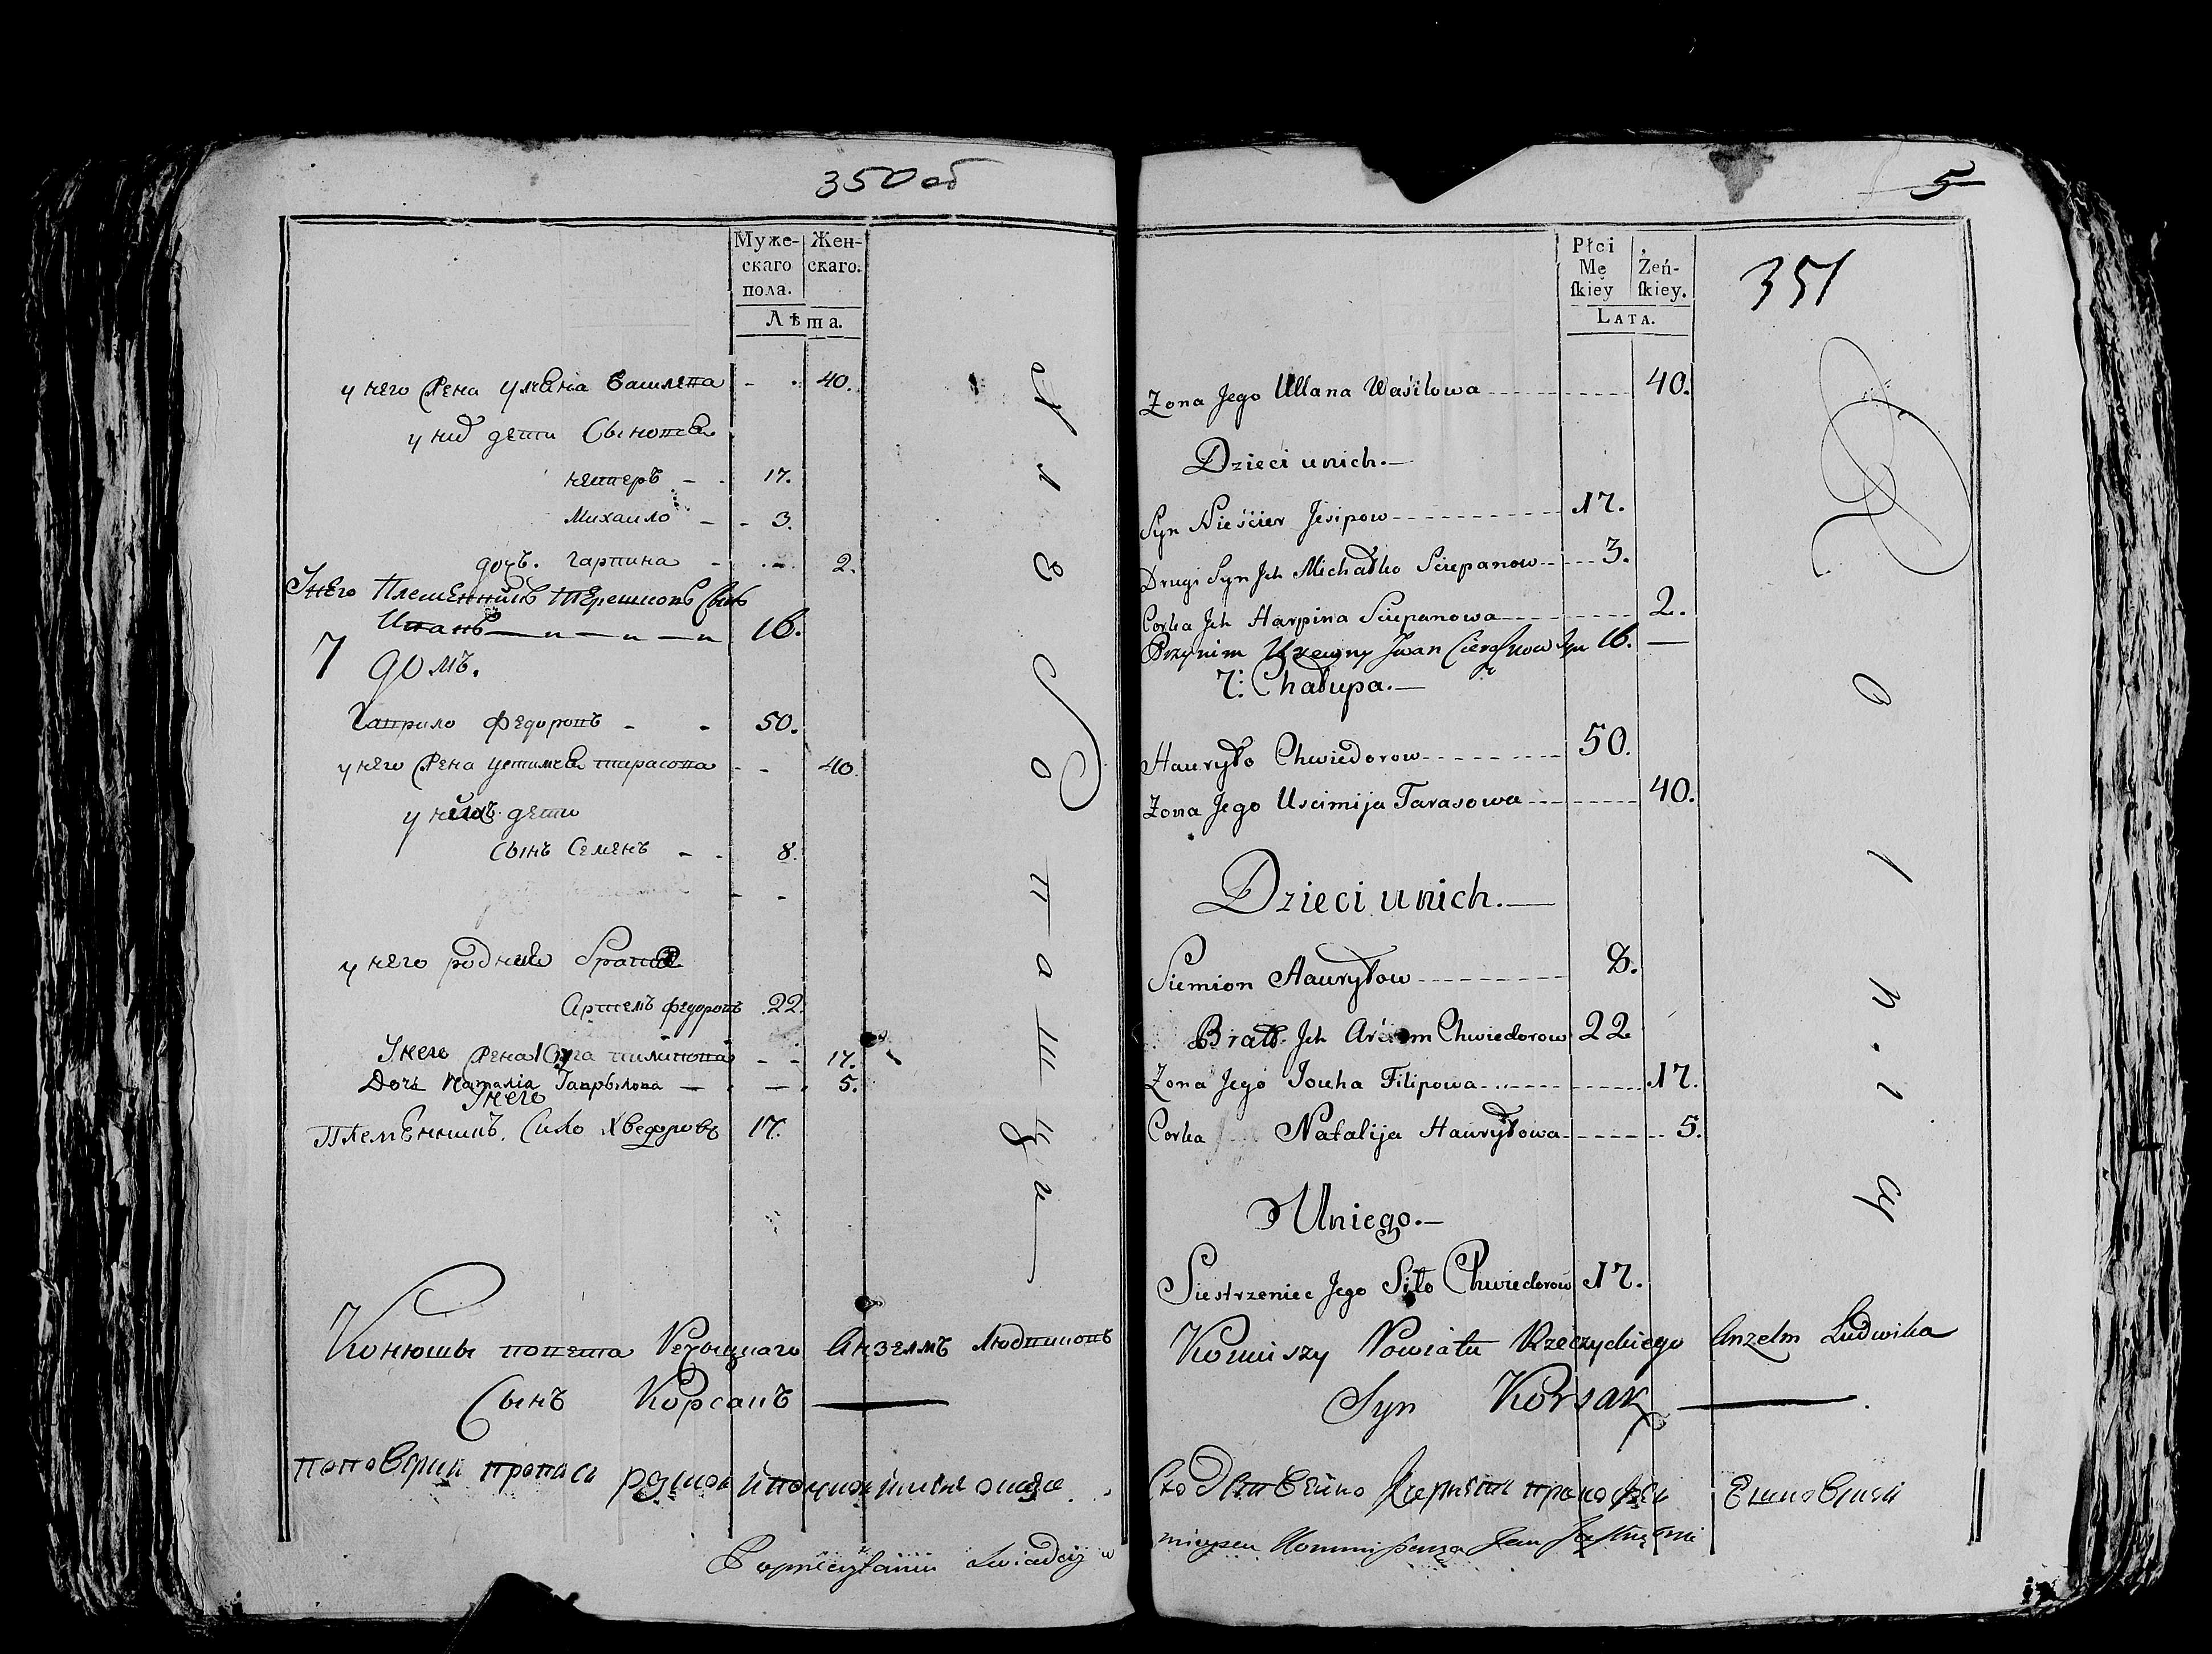 350 об
Муже-
скаго
пола.
Жен-
скаго.
Лѣта.
у него жена улляна василева 40.
у них дети Сыновья
нестеръ 17.
Михаило 3.
дочь. гарпина 2.
У него Племенникъ терешковъ Сынъ
Иванъ 16.
7 домъ.
Гаврило федоровъ 50.
у него жена устимья тарасова 40.
у нихъ дети
Сынъ Семенъ 8.
у него родней братъ
Артемъ федоровъ 22.
У него жена филипова 17.
Дочь Наталiя Гаврылова 5.
У него
племенникъ. Сило Хведоровъ 17.
Конюшы повета Речыцкаго Анзелмъ Людвиковъ
Сынъ Корсакъ
5
351
Płci
Mę
ſkiey
Żeń-
ſkiey.
Lata.
Zona Jego Ullana Wasilowa 40.
Dzieci unich.
Syn Nieścier Jesipow 17.
Drugi Syn Jch Michałko Sciepanow 3.
Corka Jch Harpina Sciepanowa 2.
Przynim Krewny Jwan Cieraszkow Syn 16. —
7: Chałupa.
Hauryło Chwiedorow 50.
Zona Jego Uscimija Tarasowa 40.
Dzieci unich.
Siemion Hauryłow 8.
Brat Jch Arciom Chwiedorow 22
Zona Jego Jouha Filipowa 17.
Corka Natalija Hauryłowa 5.
Uniego.
Siestrzeniec Jego Siło Chwiedorow 17.
Koniuszy Powiatu Rzeczyckiego Anzelm Ludwika
Syn Korsak